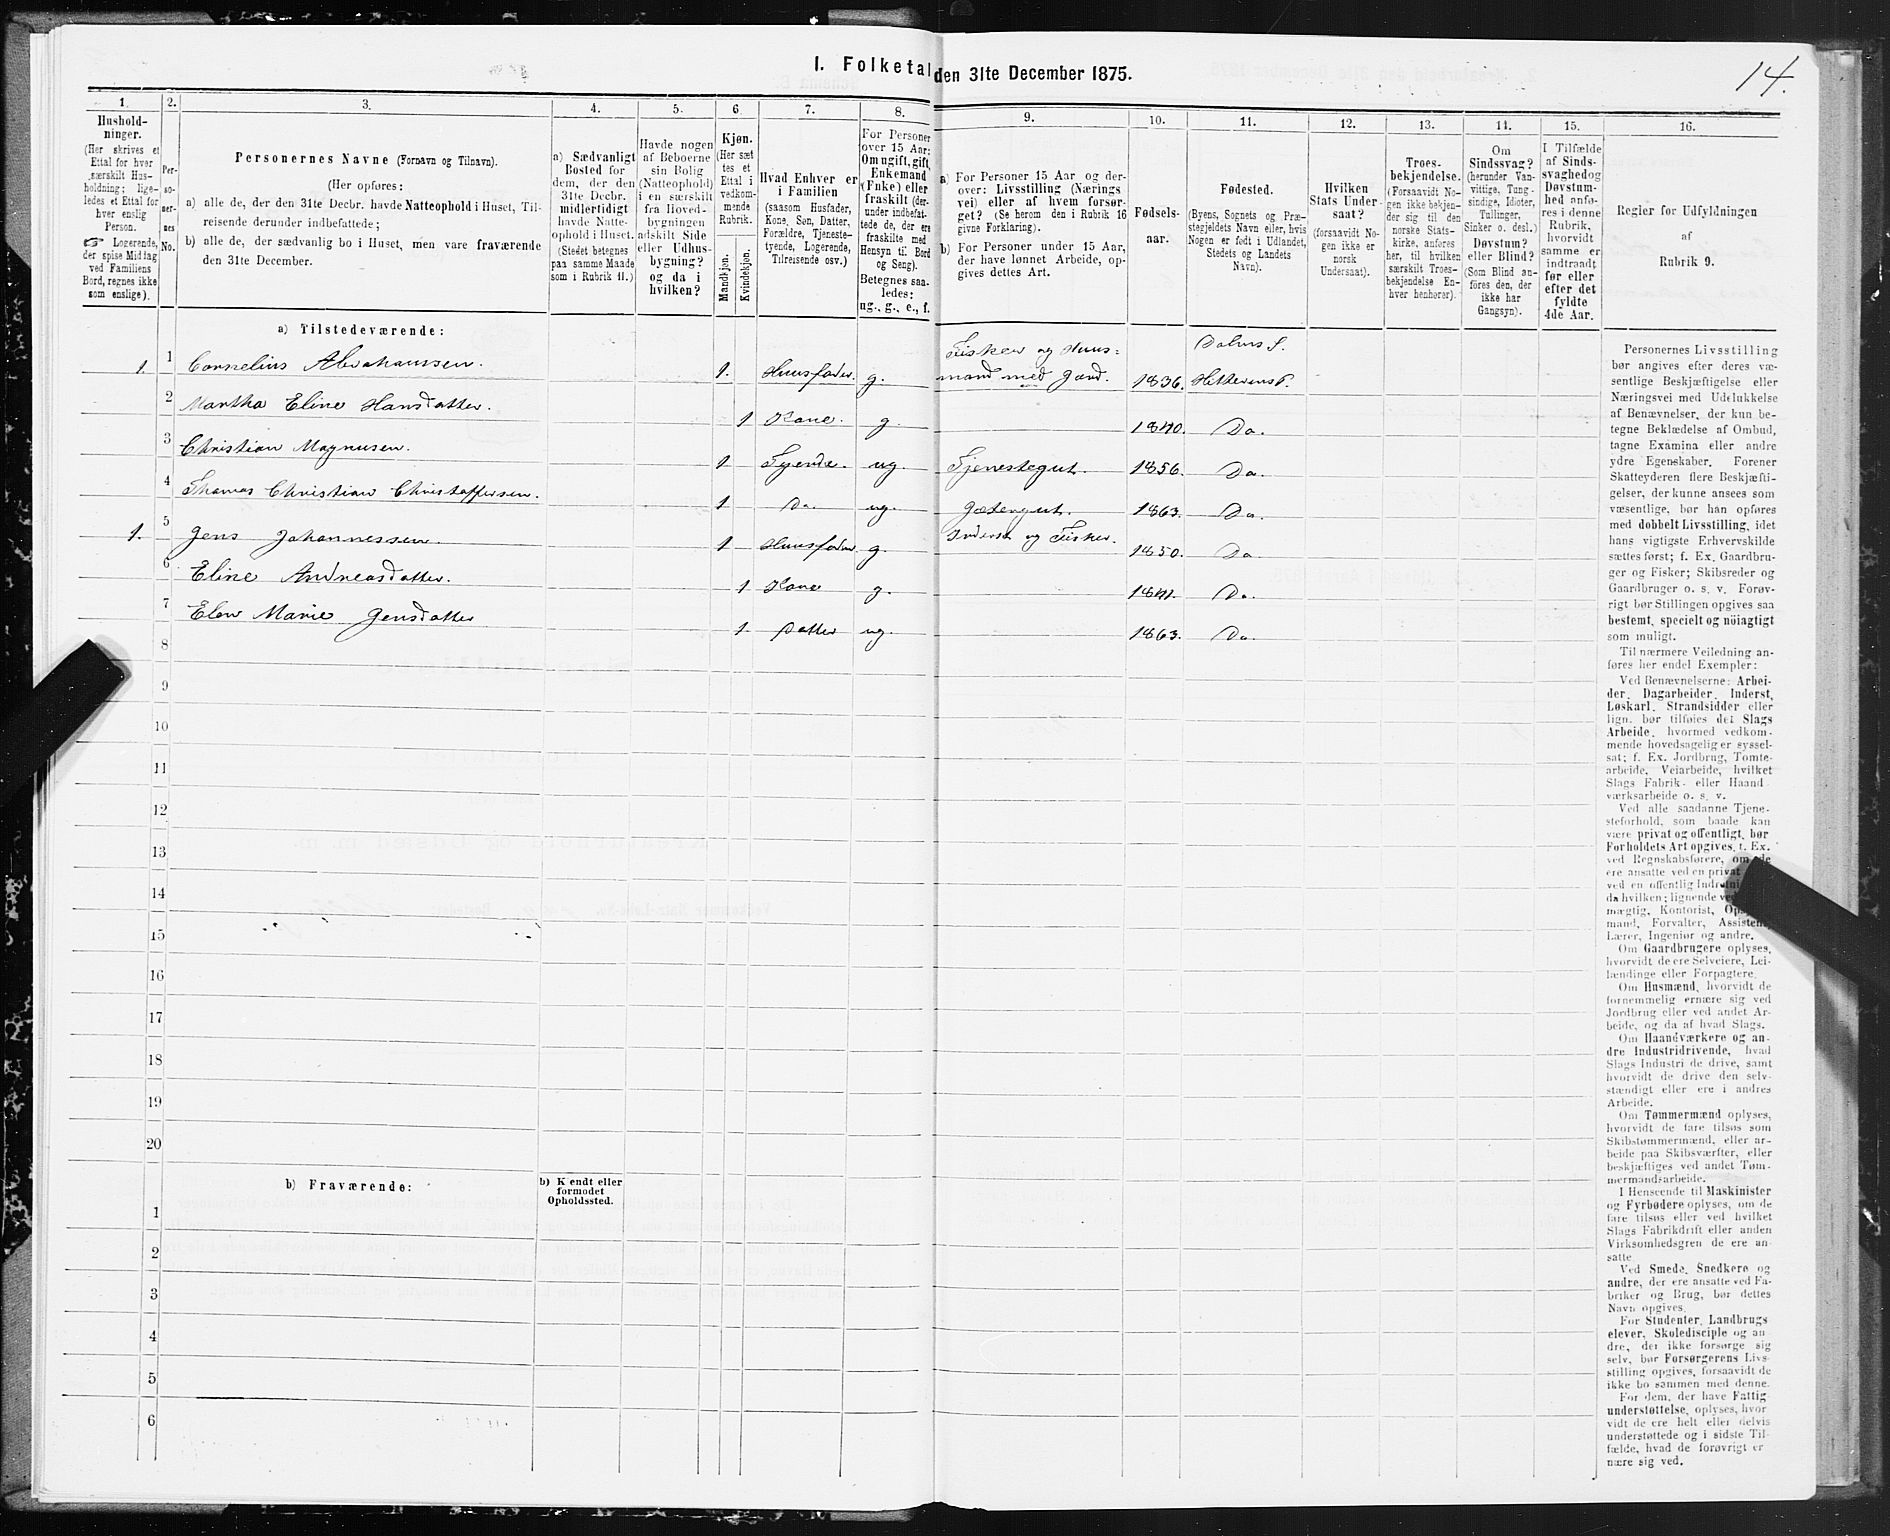 I. Folketal den 31te December 1875.
14.
1.
2.
3.
4.
5.
6
7.
8.
9.
10.
11.
12.
13.
14.
15.
16.
Hushold-
ninger.
(Her skrives et
Ettal for hver
særskilt Hus-
holdning; lige-
ledes et Ettal for
hver enslig
Person.
☞ Logerende,
der spise Middag
ved Familiens
Bord, regnes ikke
som enslige).
Per-
so-
ner-
nes
No.
Personernes Navne (Fornavn og Tilnavn).
(Her opføres:
a) alle de, der den 31te Decbr. havde Natteophold i Huset, Til-
reisende derunder indbefattede;
b) alle de, der sædvanlig bo i Huset, men vare fraværende
den 31te December.
a) Sædvanligt
Bosted for
dem, der den
31te Decbr.
midlertidigt
havde Natte-
ophold i Huset.
(Stedet betegnes
paa samme Maade
som i Rubrik 11.)
Havde nogen
af Beboerne
sin Bolig
(Natteophold)
i en særskilt
fra Hoved-
bygningen
adskilt Side
eller Udhus-
bygning?
og da i
hvilken?
Kjøn.
(Her sæt
tes et
Ettal i
vedkom-
mende
Rubrik.
Mandkjøn.
Kvindekjøn.
Hvad Enhver er
i Familien
(saasom Husfader,
Kone, Søn, Datter,
Forældre, Tjeneste-
tyende, Logerende,
Tilreisende osv.)
For Personer
over 15 Aar:
Om ugift, gift,
Enkemand
(Enke) eller
fraskilt (der-
under indbefat-
tede de, der ere
fraskilte med
Hensyn til Bord
og Seng).
Betegnes saa-
ledes:
ug., g., e., f.
a) For Personer 15 Aar og der-
over: Livsstilling (Nærings
vei) eller af hvem forsør-
get? (Se herom den i Rubrik 16
givne Forklaring).
b) For Personer under 15 Aar,
der have lønnet Arbeide, op-
gives dettes Art.
Fødsels-
aar.
Fødested.
(Byens, Sognets og Præ-
stegjeldets Navn eller, hvis
Nogen er født i Udlandet,
Stedets og Landets
Navn).
Hvilken
Stats Under-
saat?
(forsaavidt No-
gen ikke er
norsk
Undersaat).
Troes-
bekjendelse.
(Forsaavidt No-
gen ikke bekjen-
der sig til den
norske Stats-
kirke, anføres
her, til hvilken
særskilt Troes-
bekjendelse En-
hver henhører).
Om
Sindssvag?
(herunder Van-
vittige, Tung-
sindige, Idioter,
Tullinger,
Sinker o. desl.)
Døvstum?
eller Blind?
(Som Blind an-
føres den, der
ikke har
Gangsyn).
I Tilfælde
af Sinds-
svaghed og
Døvstum-
hed anfø-
res i denne
Rubrik,
hvorvidt
samme er
indtraadt
før eller
efter det
fyldte
4de Aar.
Regler for Udfyldningen
af
Rubrik 9.
a) Tilstedeværende:
1. 1 Cornelius Abrahamsen. 1. Huusfader. g. Fisker og Huus-
mand med Jord. 1836. Dolms S.
Hitterens P.
2 Martha Eline Hansdatter. 1 Kone. g. 1840. Do.
3 Christian Magnusen. 1 Tyende. ug. Tjenestegut. 1856. Do
4 Thomas Christian Christoffersen. 1 Do. ug. Gjætergut. 1863. Do.
1. 5 Jens Johannessen. 1 Huusfader g. Inderst og Fisker. 1850. Do
6 Eline Andreasdatter. 1 Kone g. 1841. Do.
7 Elen Marie Jensdatter 1. Datter ug. 1863. Do
8
9
10
11
12
13
14
15
16
17
18
19
20
b) Fraværende:
b) Kjendt eller
formodet
Opholdssted.
1
2
3
4
5
6
Personernes Livsstilling
bør angives efter deres væ-
sentlige Beskjæftigelse eller
Næringsvei med Udelukkelse
af Benævnelser, der kun be-
tegne Beklædelse af Ombud,
tagne Examina eller andre
ydre Egenskaber. Forener
Skatteyderen flere Beskjæfti-
gelser, der kunne ansees som
væsentlige, bør han opføres
med dobbelt Livsstilling, idet
hans vigtigste Erhvervskilde
sættes først; f. Ex. Gaardbru-
ger og Fisker; Skibsreder og
Gaardbruger o. s. v. Forøv-
rigt bør Stillingen opgives saa
bestemt, specielt og nöiagtigt
som muligt.
Til nærmere Veiledning an-
føres her endel Exempler:
Ved Benævnelserne: Arbei-
der, Dagarbeider, Inderst,
Løskarl, Strandsidder eller
lign. bør tilføies det Slags
Arbeide, hvormed vedkom-
mende hovedsagelig er syssel-
sat; f. Ex. Jordbrug, Tomte-
arbeide, Veiarbeide, hvilket
Slags Fabrik- eller Haand
værksarbeide o. s. v.
Ved alle saadanne Tjene-
steforhold, som baade kan
være privat og offentligt, bør
Forholdets Art opgives, t. Ex.
ved Regnskabsførere, om de
ere ansatte ved en privat
ved en offentlig
da hvilken; lignende
mægtig, Kontorist,
mand, Forvalter, Assistent,
Lærer, Ingeniør og andre.
Om Gaardbrugere oplyses,
hvorvidt de ere Selveiere, Lei-
lændinge eller Forpagtere.
Om Husmænd, hvorvidt de
fornemmelig ernære sig ved
Jordbrug eller ved andet Ar-
beide, og da af hvad Slags.
Om Haandværkere og an-
dre Industridrivende, hvad
Slags Industri de drive, samt
hvorvidt de drive den selv-
stændigt eller ere i andres
Arbeide.
Om Tømmermænd oplyses,
hvorvidt de fare tilsøs som
Skibstømmermænd, eller ar-
beide paa Skibsværfter, eller
beskjæftiges ved andet Tøm-
mermandsarbeide.
I Henseende til Maskinister
og Fyrbødere oplyses, om de
fare tilsøs eller ved hvilket
Slags Fabrikdrift eller anden
Virksomhedsgren de ere an-
satte
Ved Smede, Snedkere og
andre, der ere ansatte ved Fa-
briker og Brug, bør dettes
Navn opgives.
For Studenter, Landbrugs
elever, Skoledisciple og an
dre, der ikke forsørge sig
selv, bør Forsørgerens Livs-
stilling opgives, forsaavidt de
ikke bo sammen med denne.
For dem, der have Fattig
understøttelse, oplyses, hvor
vidt de ere helt eller delvis
understøttede og i sidste Til-
fælde, hvad de forøvrigt er
nære sig ved.